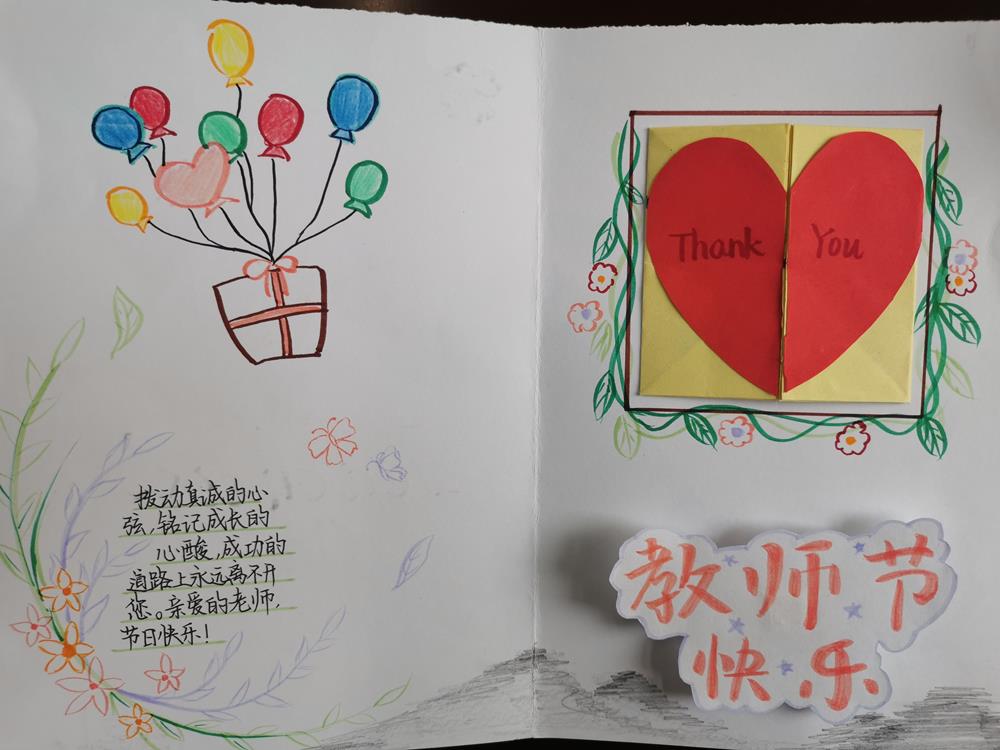 拨动真诚的心
弦,铭记成长的
心酸,成功的
道路上永远离不开
您。亲爱的老师,
节日快乐!
Thank You
教师节
快乐